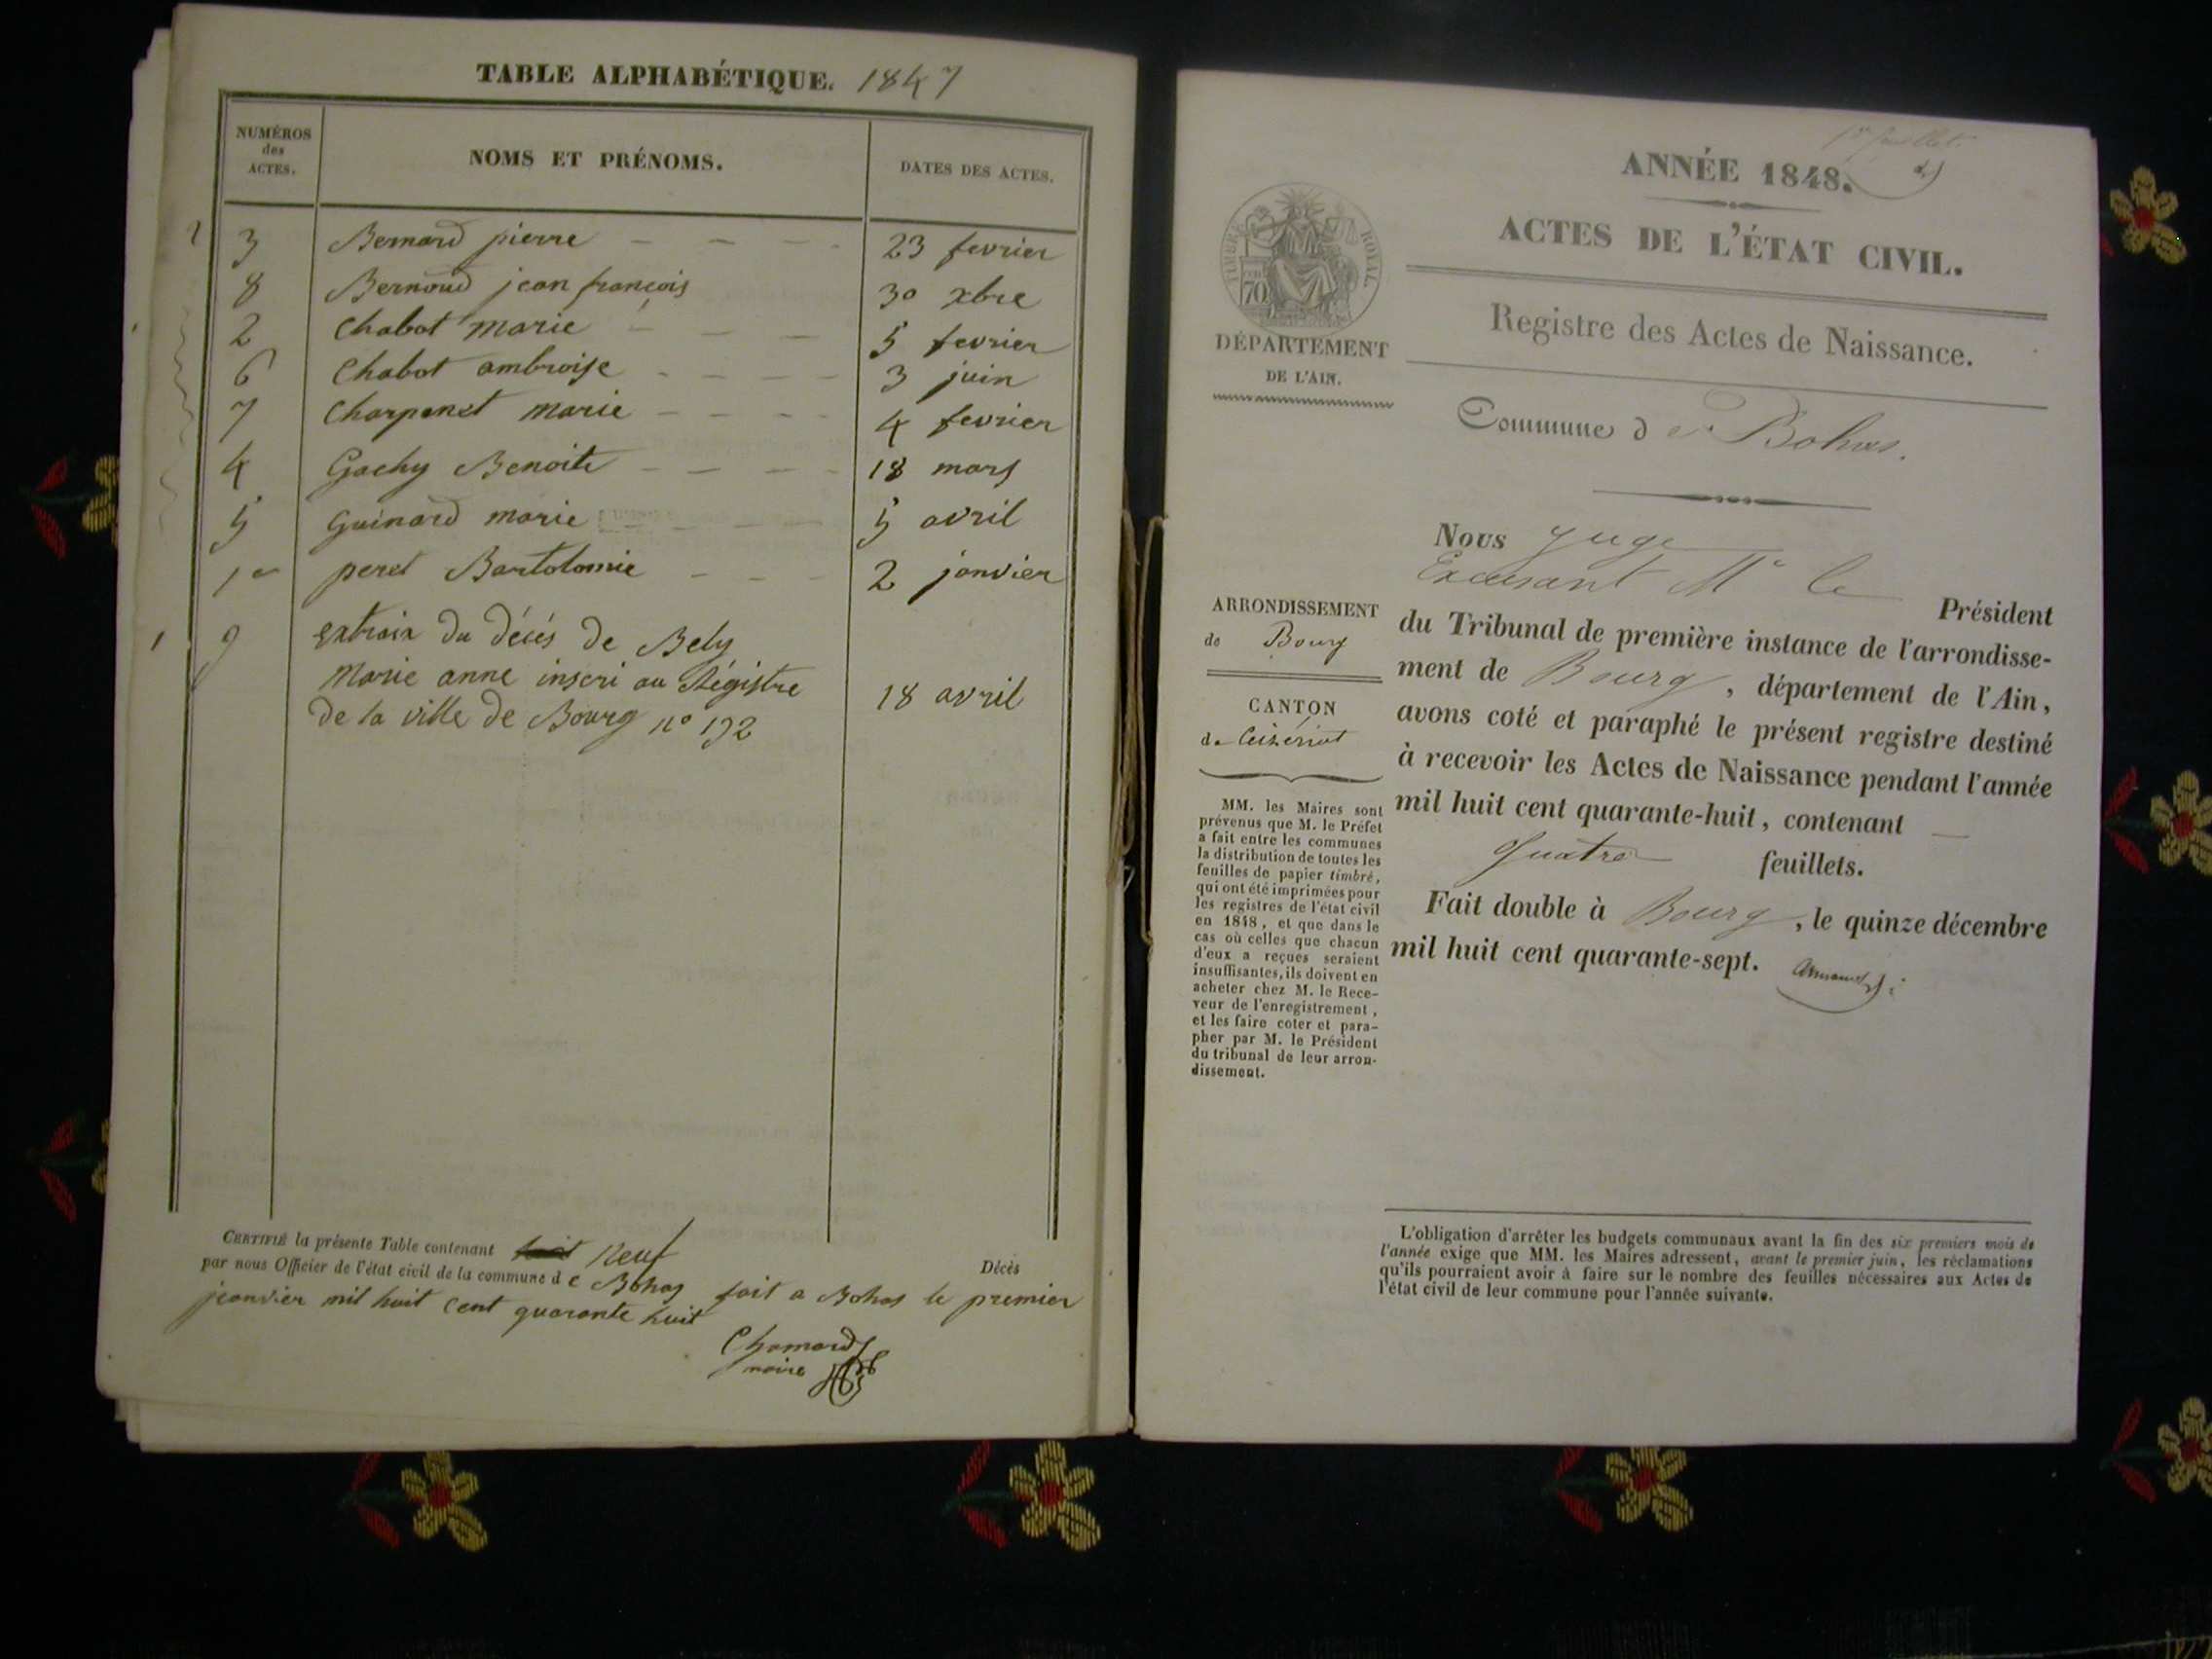 TABLE ALPHABÉTIQUE. 1847
NUMÉROS
des
ACTES.
NOMS ET PRÉNOMS.
DATES DES ACTES.
3 Bernard pierre 23 fevrier
8 Bernoud jean françois 30 xbre
2 Chabot marie 5 fevrier
6 Chabot ambroise 3 juin
7 Charpenet marie 4 fevrier
4 Gachy Benoite 18 mars
5 Guinard marie 5 avril
1er peret Bartolomie 2 janvier
9 extraix du décés de Bely
Marie anne inscri au Régistre
de la ville de Bourg n° 192 18 avril
CERTIFIÉ la présente Table contenant huit Neuf Décès
par nous Officier de l'état civil de la commune de Bohas fait a Bohas le premier
jeanvier mil huit cent quarante huit
Chamard
maire
1er feuillet.
ANNÉE 1848.
ACTES DE L'ÉTAT CIVIL.
Registre des Actes de Naissance.
TIMBRE ROYAL
70
DÉPARTEMENT
DE L'AIN.
Commune de Bohas.
ARRONDISSEMENT
de Bourg
CANTON
de Ceizériat
MM. les Maires sont
prévenus que M. le Préfet
a fait entre les communes
la distribution de toutes les
feuilles de papier timbré,
qui ont été imprimées pour
les registres de l'état civil
en 1848, et que dans le
cas où celles que chacun
d'eux a reçues seraient
insuffisantes, ils doivent en
acheter chez M. le Rece-
veur de l'enregistrement,
et les faire coter et para-
pher par M. le Président
du tribunal de leur arron-
dissement.
Nous Juge
Excusant Mr le Président
du Tribunal de première instance de l'arrondisse-
ment de Bourg, département de l'Ain,
avons coté et paraphé le présent registre destiné
à recevoir les Actes de Naissance pendant l'année
mil huit cent quarante-huit, contenant
quatre feuillets.
Fait double à Bourg, le quinze décembre
mil huit cent quarante-sept.
L'obligation d'arrêter les budgets communaux avant la fin des six premiers mois de
l'année exige que MM. les Maires adressent, avant le premier juin, les réclamations
qu'ils pourraient avoir à faire sur le nombre des feuilles nécessaires aux Actes de
l'état civil de leur commune pour l'année suivante.